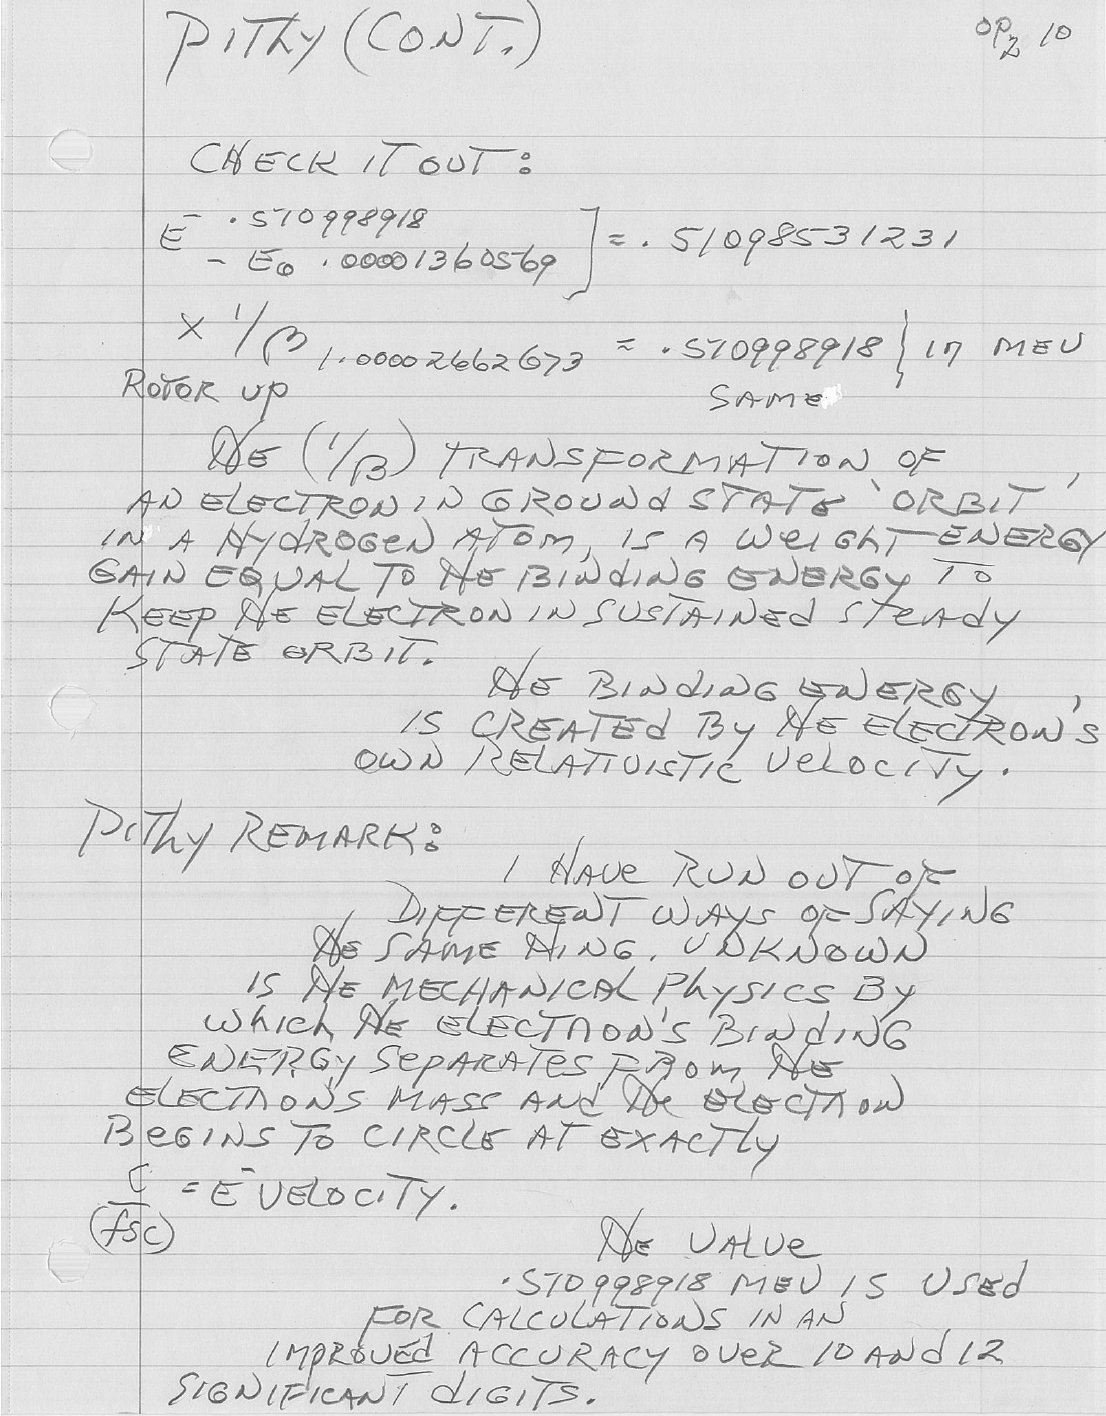 PITHY (CONT.)
OP2 10
CHECK IT OUT:
E⁻ .510998918
- E0 .00001360569 ] = .51098531231
X 1/β 1.00002662673 = .510998918 } IN MEV
ROTOR UP SAME
THE (1/β) TRANSFORMATION OF
AN ELECTRON IN GROUND STATE 'ORBIT'
IN A HYDROGEN ATOM, IS A WEIGHT-ENERGY
GAIN EQUAL TO THE BINDING ENERGY TO
KEEP THE ELECTRON IN SUSTAINED STEADY
STATE ORBIT.
THE BINDING ENERGY
IS CREATED BY THE ELECTRON'S
OWN RELATIVISTIC VELOCITY.
PITHY REMARK:
I HAVE RUN OUT OF
DIFFERENT WAYS OF SAYING
THE SAME THING. UNKNOWN
IS THE MECHANICAL PHYSICS BY
WHICH THE ELECTRON'S BINDING
ENERGY SEPARATES FROM THE
ELECTRONS MASS AND THE ELECTRON
BEGINS TO CIRCLE AT EXACTLY
C/(fsc) = E⁻ VELOCITY.
THE VALUE
.510998918 MEV IS USED
FOR CALCULATIONS IN AN
IMPROVED ACCURACY OVER 10 AND 12
SIGNIFICANT DIGITS.